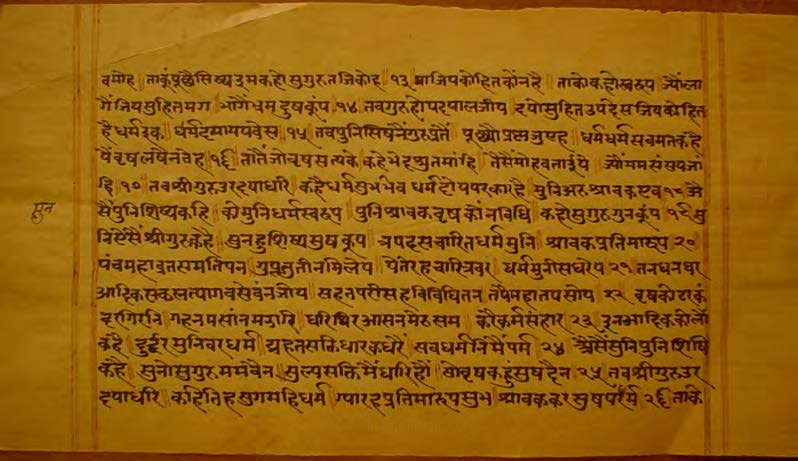 वमोह ताकुंपूछैसिष्य तुम कहो सुगुरु तजि कोह १३ या जियको हित कोंन है ताको कहो स्वरूप ज्यौंला
गैं जिय सुहित मग भागैं भ्रम दुषकूंप १४ तव गुरु होय दयाल जीय दयो सुहित उपदेस जियको हित
है धर्म इक धर्म दयामय वेस १५ तव पुनि सिषनैं गुरु प्रतैं पूछ्यौ प्रस्न जु एह धर्म धर्म सव मत कहै
१६ तातैं जो वृष सत्य के कहे भेद श्रुत मांहि तैसैं मोह वताईये ज्यौं मम संसय जां
हि १७ तव श्रीगुरु उर दया धरि कहै धर्म सुभ भेव धर्म दोय परकार है मुनि अरु श्रावक एव १८ अै
सैं पुनि शिष्य कहि को मुनि धर्म स्वरूप पुनि श्रावक वृष कोंन विधि कहो सुगुरु गुन कूंप १९ सु
नि अैसैं श्रीगुरु कहै सुनहु शिष्य सुष कूप त्रपदस चारित धर्म मुनि श्रावक प्रतिमा रूप २०
पंच महाव्रत समति पन गुप्त तीन मिलेय ये तेरह चारित्र वर धर्म मुनीस धरेय २१ तन धन घर
आदिक सकल त्याग वसे वन जोय सहत परीसह विविधि तन तपै महा तप सोय २२
गहन मसांन मझारि धरि थिर आसन मेठ सम करै कर्म संहार २३ इन आदिक को लौं
कहै दुर्द्धर मुनिवर धर्म ग्रहत सक्ति धारक धरैं सव धर्मनि मैं पर्म २४ अैसैं सुनि पुनि शिषि
कहै सुनो सुगुरु मम वैन तुल्य सक्ति मैं धरि हों वृष कहुं सुष दैन २५ तव श्रीगुरु उर
दया धरि कहि तिह सुगम महि धर्म ग्यारह प्रतिमा रूप सुभ श्रावक कर सुष पर्म २६ ताके